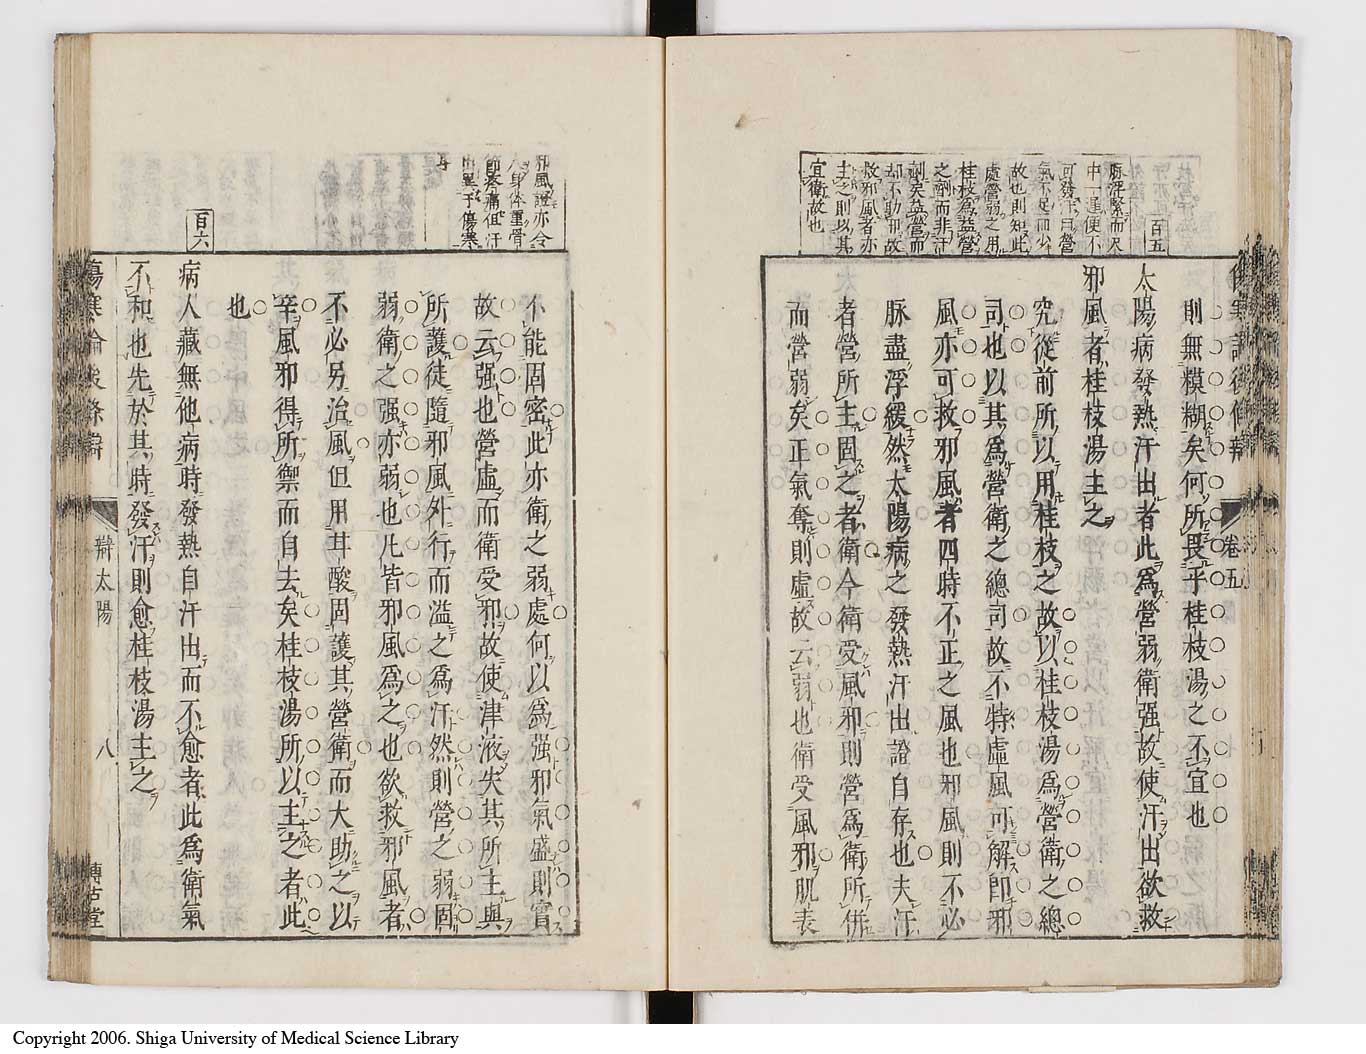 百五
脉浮緊而尺
中一遲便不
可發汗曰營
氣不足血少
故也則知此
處營弱之用
桂枝為益營
之劑而非汗
劑矣益營而
却不動邪故
救邪風者亦
主之則以其
宜衛故也
卷五
則無糢糊矣何所畏乎桂枝湯之不宜也
太陽病發熱汗出者此爲營弱衛强故使汗出欲救
邪風者桂枝湯主之
究從前所以用桂枝之故以桂枝湯爲營衛之總
司也以其爲營衛之總司故不特虛風可解即邪
風亦可救邪風者四時不正之風也邪風則不必
脉盡浮緩然太陽病之發熱汗出證自存也夫汗
者營所主固之者衛今衛受風邪則營爲衛所併
而營弱矣正氣奪則虛故云弱也衛受風邪肌表
邪風證亦令
人身体重骨
節疼痛但汗
出異于傷寒
耳
不能固密此亦衛之弱處何以爲强邪氣盛則實
故云强也營虛而衛受邪故使津液失其所主與
所護徒隨邪風外行而溢之爲汗然則營之弱固
弱衛之强亦弱也凡皆邪風爲之也欲救邪風者
不必另治風但用其酸固護其營衛而大助之以
辛風邪得所禦而自去矣桂枝湯所以主之者此
也
百六
病人藏無他病時發熱自汗出而不愈者此爲衛氣
不和也先於其時發汗則愈桂枝湯主之
傷寒論後條辯
辯太陽
八
博古堂
Copyright 2006. Shiga University of Medical Science Library